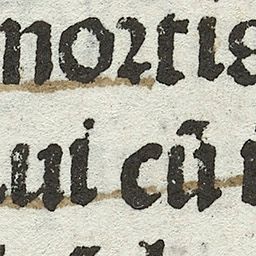 moꝛtis
ui cū